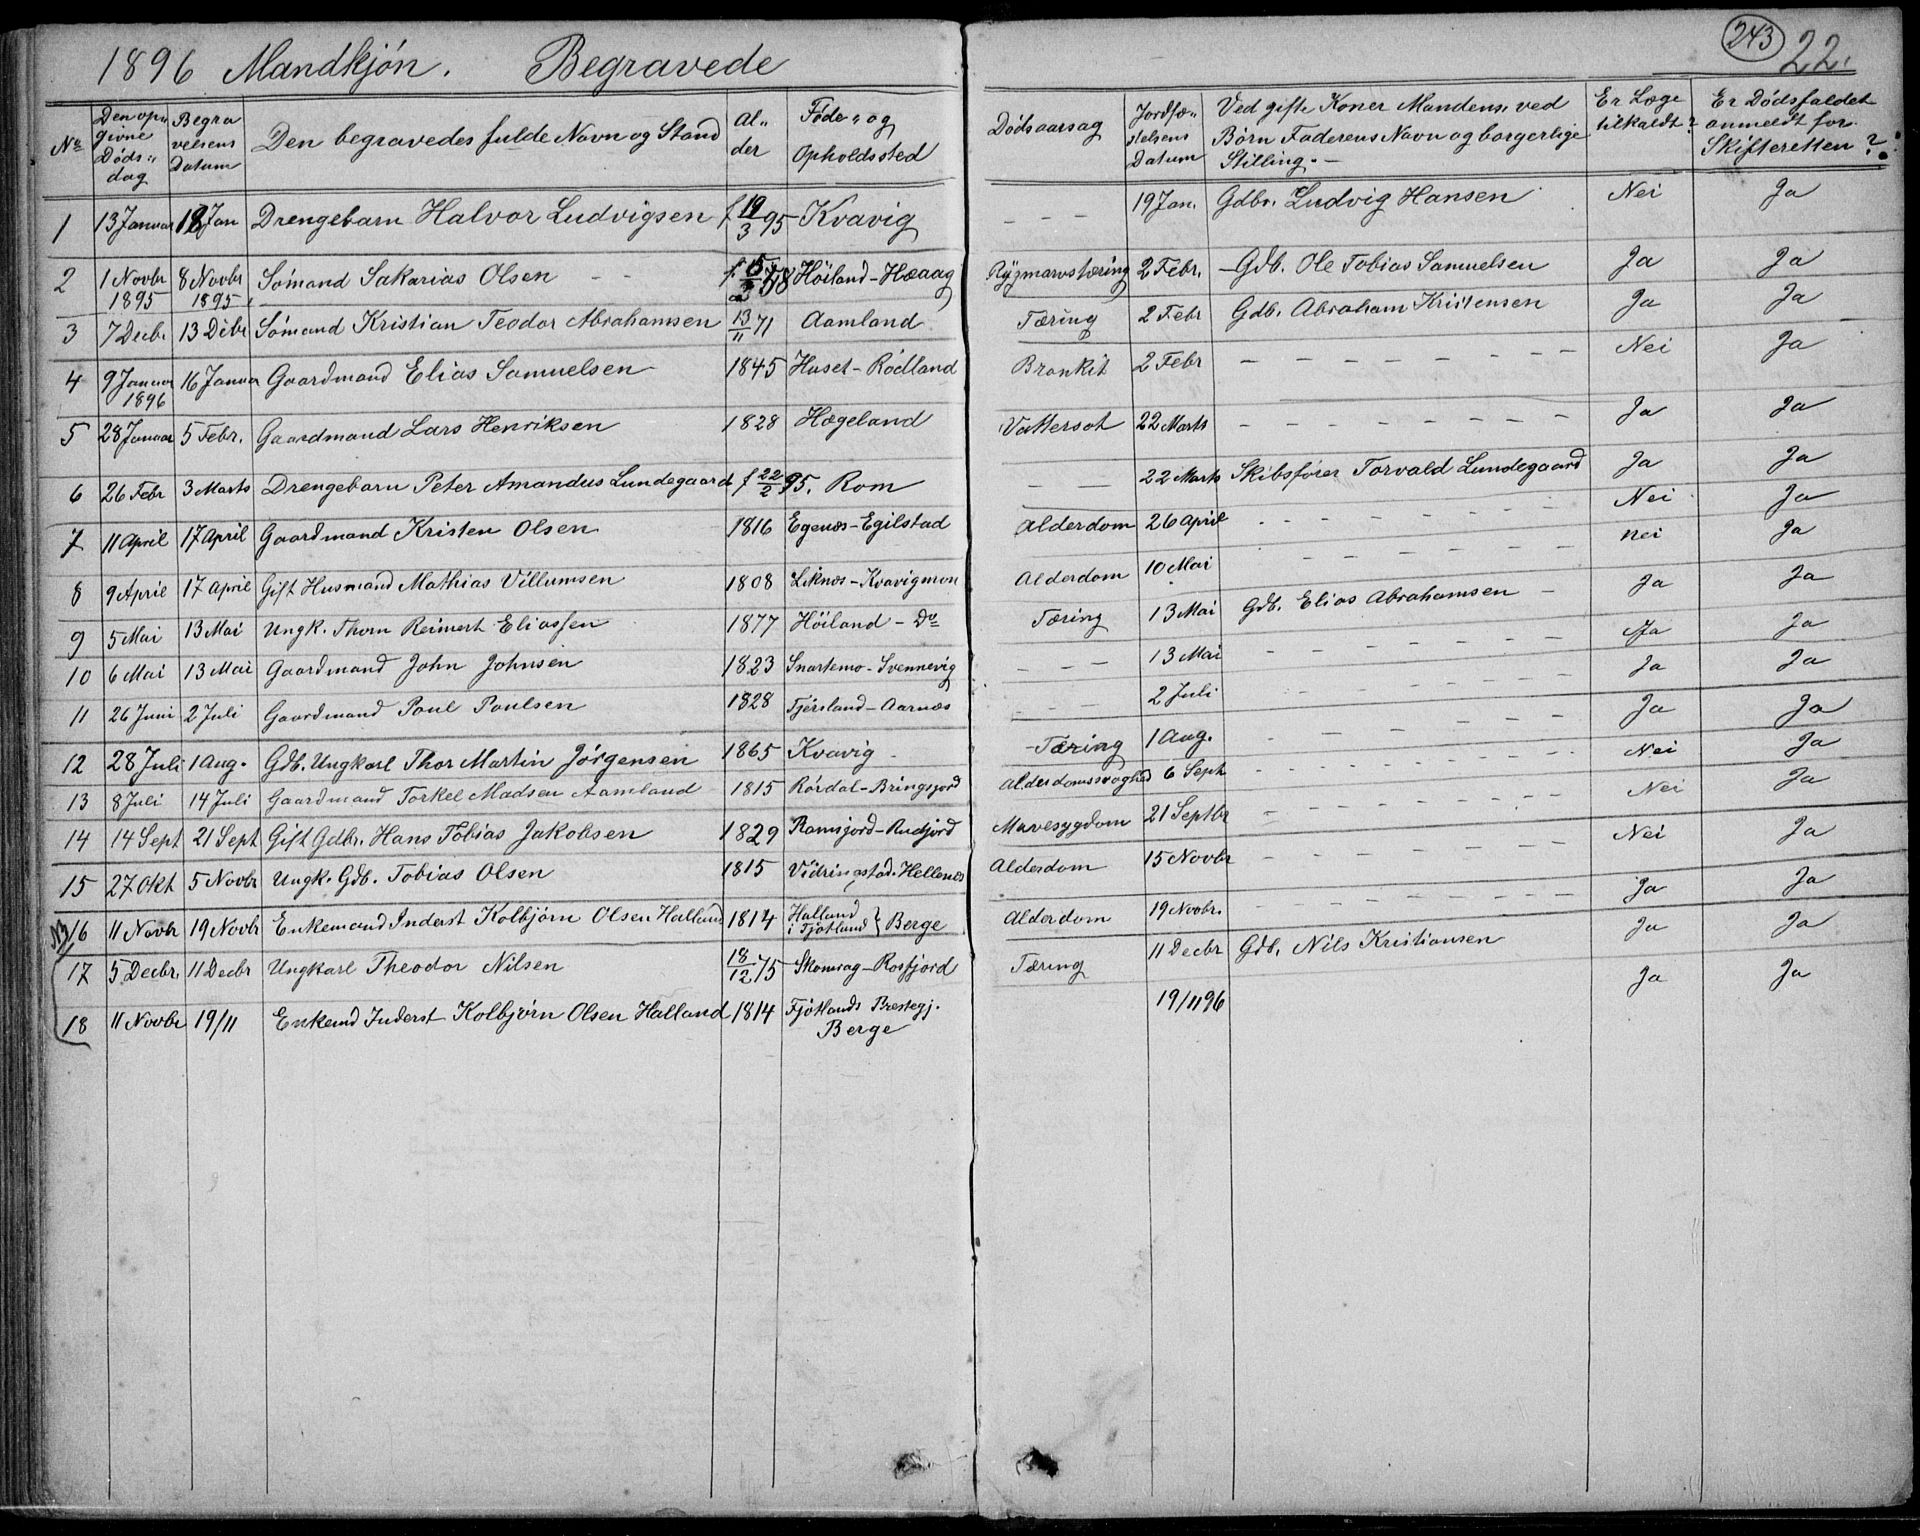 1896 Mandkjøn. Begravede
243 22.
No Den opgivne Dødsdag Begravelsens Datum Den begravedes fulde Navn og Stand Alder Føde- og Opholdssted Dødsaarsag Jordfæstelsens Datum Ved gifte Koner Mandens, ved Børn Faderens Navn og borgerlige Stilling.- Er Læge tilkaldt? Er Dødsfaldet anmeldt for Skifteretten?
1 13 Januar 18 Jan Drengebarn Halvor Ludvigsen f 19/3 95 Kvavig - - - 19 Jan. Gdbr. Ludvig Hansen Nei Ja
2 1 Novbr 1895 8 Novbr 1895 Sømand Sakarias Olsen - - 58 Høiland-Haaag Rygmarvstæring 2 Febr. Gdb. Ole Tobias Samuelsen Ja Ja
3 7 Decbr 13 Debr Sømand Kristian Teodor Abrahamsen 13/11 71 Aamland Tæring 2 Febr Gdb. Abraham Kristensen Ja Ja
4 9 Januar 1896 16 Januar Gaardmand Elias Samuelsen 1845 Huset-Rødland Bronkit 2 Febr - - - - - - - Nei Ja
5 28 Januar 5 Febr. Gaardmand Lars Henriksen 1828 Hægeland Vattersot 22 Marts - - - - - - - Ja Ja
6 26 Febr 3 Marts Drengebarn Peter Amandus Lundegaard f 22/2 95. Rom - - 22 Marts Skibsfører Torvald Lundegaard Ja Ja
7 11 April 17 April Gaardmand Kristen Olsen 1816 Egenæs-Egilstad Alderdom 26 April - - - - - - - Nei Ja
8 9 April 17 April Gift Husmand Mathias Villumsen 1808 Liknæs-Kvavigmoen Alderdom 10 Mai - - - - - - - nei Ja
9 5 Mai 13 Mai Ungk. Thom Reimert Eliassen 1877 Høiland-Do Tæring 13 Mai Gdb. Elias Abrahamsen - Ja Ja
10 6 Mai 13 Mai Gaardmand John Johnsen 1823 Snartemo-Svennevig - - - 13 Mai - - - - - - - Ja Ja
11 26 Juni 2 Juli Gaardmand Poul Poulsen 1828 Fjersland-Aarnæs - - - 2 Juli - - - - - - - Ja Ja
12 28 Juli 1 Aug. Gdb. Ungkarl Thor Martin Jørgensen 1865 Kvavig - Tæring 1 Aug. - - - - - - - Ja Ja
13 8 Juli 14 Juli Gaardmand Torkel Madsen Aamland 1815 Rørdal-Bringsjord Alderdomssvaghed 6 Sept - - - - - - - Nei Ja
14 14 Sept 21 Sept Gift Gdbr. Hans Tobias Jakobsen 1829 Ramsjord-Rudjord Mavesygdom 21 Septbr - - - - - - - Nei Ja
15 27 Okt 5 Novbr Ungk. Gdb. Tobias Olsen 1815 Vidringstad-Hellenes Alderdom 15 Novbr - - - - - - - Nei Ja
16 11 Novbr 19 Novbr Enkemand Inderst Kolbjørn Olsen Halland 1814 Halland i Fjotland } Berge Alderdom 19 Novbr. Ja Ja
17 5 Decbr. 11 Decbr Ungkarl Theodor Nilsen 18/12 75 Skomrag-Rosfjord Tæring 11 Decbr Gdb. Nils Kristiansen Ja Ja
18 11 Novbr 19/11 Enkemd Inderst Kolbjørn Olsen Halland 1814 Fjotlands Prestegj. Berge 19/11 96 Ja Ja